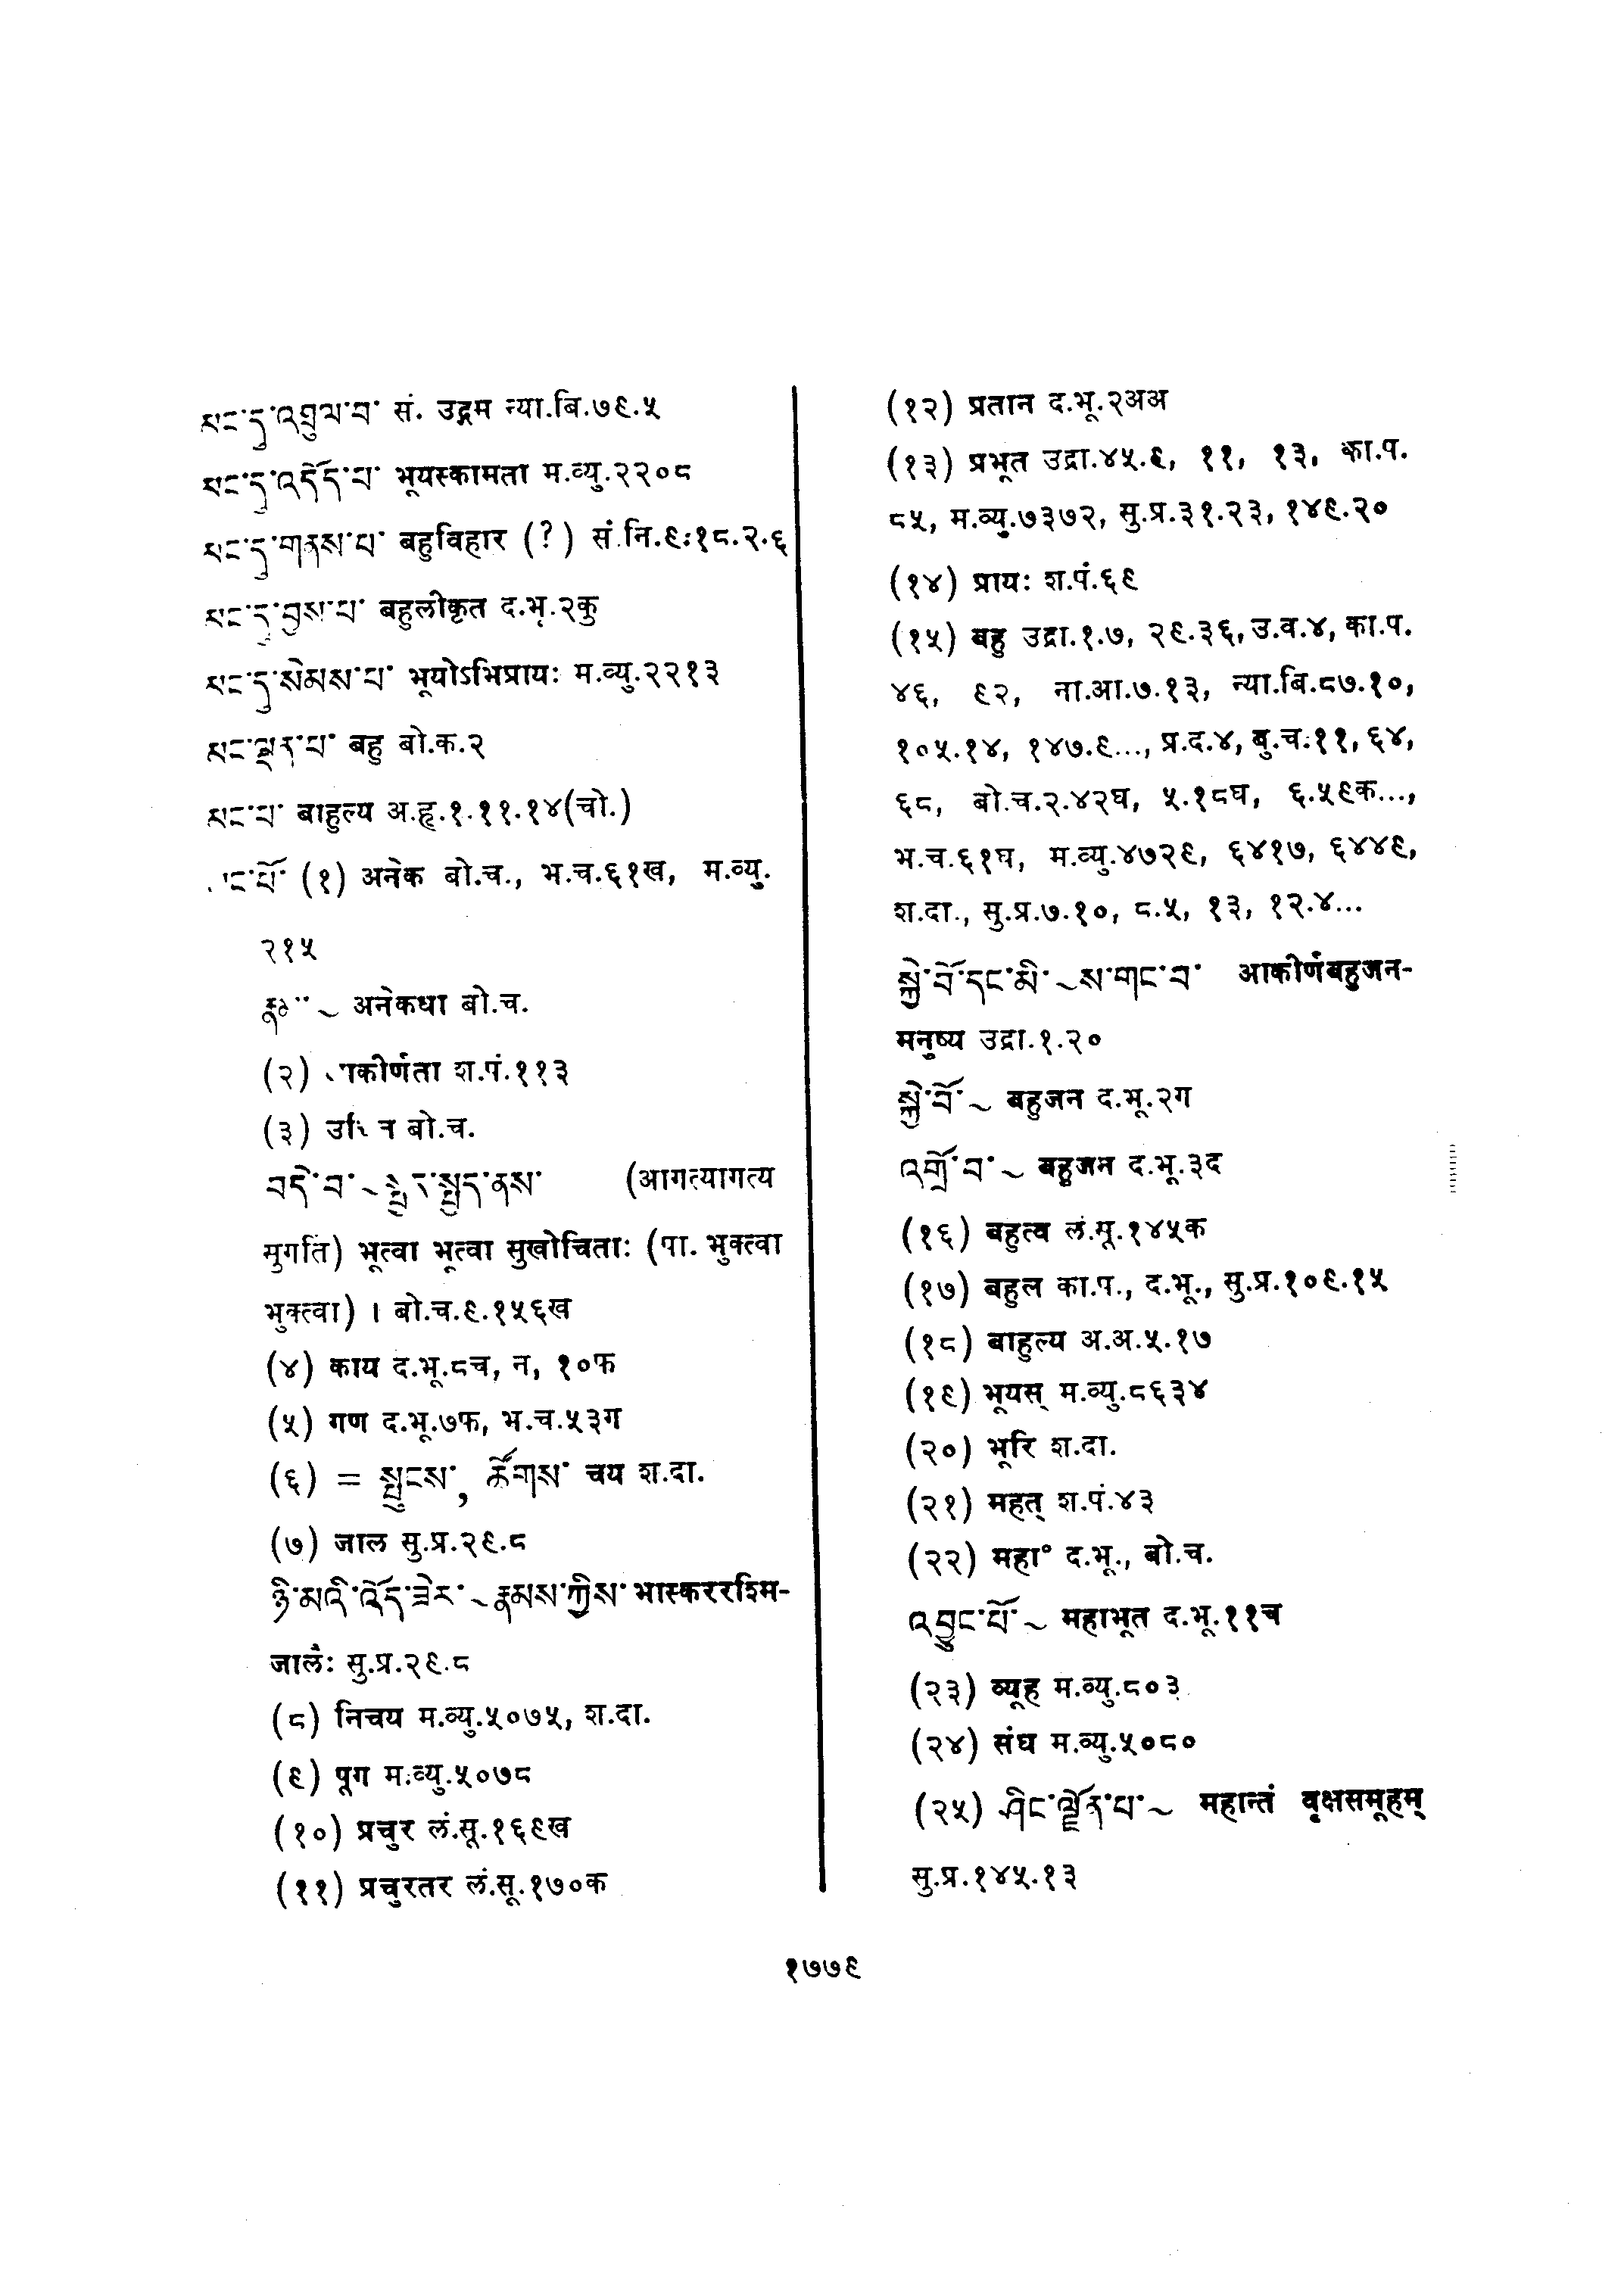 མང་དུ་འགྲུལ་བ་ सं. उद्गम न्या.बि.७९.५
མང་དུ་འདོད་པ་ भूयस्कामता म.व्यु.२२०८
མང་དུ་གནས་པ་ बहुविहार (?) सं.नि.९:१८.२.६
མང་དུ་བྱས་པ་ बहुलीकृत द.भू.२कु
མང་དུ་སེམས་པ་ भूयोऽभिप्रायः म.व्यु.२२१३
མང་ལྡན་པ་ बहु बो.क.२
མང་བ་ बाहुल्य अ.हृ.१.११.१४(चो.)
མང་པོ་ (१) अनेक बो.च., भ.च.६१ख, म.व्यु.
२१५
~ अनेकधा बो.च.
(२) ाकीर्णता श.पं.११३
(३) बो.च.
བདེ་བ་~སྤྱད་ནས་ (आगत्यागत्य
सुगतिं) भूत्वा भूत्वा सुखोचिताः (पा. भुक्त्वा
भुक्त्वा) । बो.च.९.१५६ख
(४) काय द.भू.८च, न, १०फ
(५) गण द.भू.७फ, भ.च.५३ग
(६) = སྤུངས་, ཚོགས་ चय श.दा.
(७) जाल सु.प्र.२९.८
ཉི་མའི་འོད་ཟེར་~རྣམས་ཀྱིས་ भास्कररश्मि-
जालैः सु.प्र.२९.८
(८) निचय म.व्यु.५०७५, श.दा.
(९) पूग म.व्यु.५०७८
(१०) प्रचुर लं.सू.१६९ख
(११) प्रचुरतर लं.सू.१७०क
(१२) प्रतान द.भू.२अअ
(१३) प्रभूत उद्रा.४५.९, ११, १३, का.प.
८५, म.व्यु.७३७२, सु.प्र.३१.२३, १४९.२०
(१४) प्रायः श.पं.६९
(१५) बहु उद्रा.१.७, २९.३६, उ.व.४, का.प.
४६, ९२, ना.आ.७.१३, न्या.बि.८७.१०,
१०५.१४, १४७.९..., प्र.द.४, बु.च.११, ६४,
६८, बो.च.२.४२घ, ५.१८घ, ६.५९क...,
भ.च.६१घ, म.व्यु.४७२९, ६४१७, ६४४९,
श.दा., सु.प्र.७.१०, ८.५, १३, १२.४...
སྐྱེ་བོ་དང་མི་~ས་གང་བ་ आकीर्णबहुजन-
मनुष्य उद्रा.१.२०
སྐྱེ་བོ་~ बहुजन द.भू.२ग
འགྲོ་བ་~ बहुजन द.भू.३द
(१६) बहुत्व लं.सू.१४५क
(१७) बहुल का.प., द.भू., सु.प्र.१०९.१५
(१८) बाहुल्य अ.अ.५.१७
(१९) भूयस् म.व्यु.८६३४
(२०) भूरि श.दा.
(२१) महत् श.पं.४३
(२२) महा° द.भू., बो.च.
འབྱུང་པོ་~ महाभूत द.भू.११च
(२३) व्यूह म.व्यु.८०३
(२४) संघ म.व्यु.५०८०
(२५) ཤིང་ལྗོན་པ་~ महान्तं वृक्षसमूहम्
सु.प्र.१४५.१३
१७७९